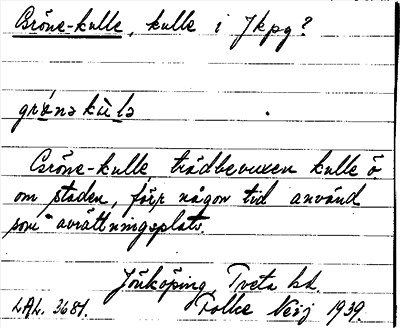 Gröne-kulle, kulle i Jkpg?
grönə kùlə
Gröne-kulle, trädbevuxen kulle ö
om staden, förr någon tid använd
som avrättningsplats.
Jönköping, Tveta hd.
LAL. 3681. Folke Neij 1939.